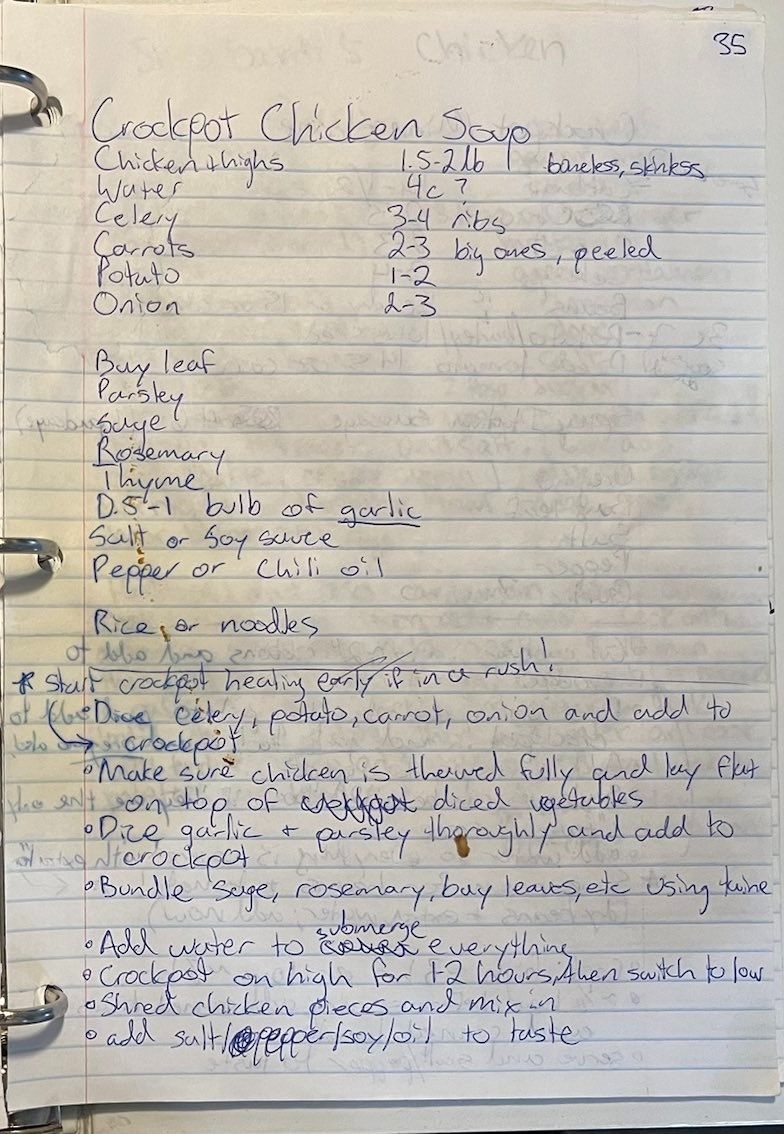 35
Crockpot Chicken Soup
Chicken thighs 1.5-2lb boneless, skinless
Water 4c ?
Celery 3-4 ribs
Carrots 2-3 big ones, peeled
Potato 1-2
Onion 2-3
Bay leaf
Parsley
Sage
Rosemary
Thyme
0.5-1 bulb of garlic
Salt or Soy sauce
Pepper or Chili oil
Rice or noodles
* Start crockpot heating early if in a rush!
• Dice celery, potato, carrot, onion and add to
→ crockpot
• Make sure chicken is thawed fully and lay flat
on top of diced vegetables
• Dice garlic + parsley thoroughly and add to
crockpot
• Bundle sage, rosemary, bay leaves, etc using twine
• Add water to submerge everything
• Crockpot on high for 1-2 hours, then switch to low
• Shred chicken pieces and mix in
• add salt/pepper/soy/oil to taste